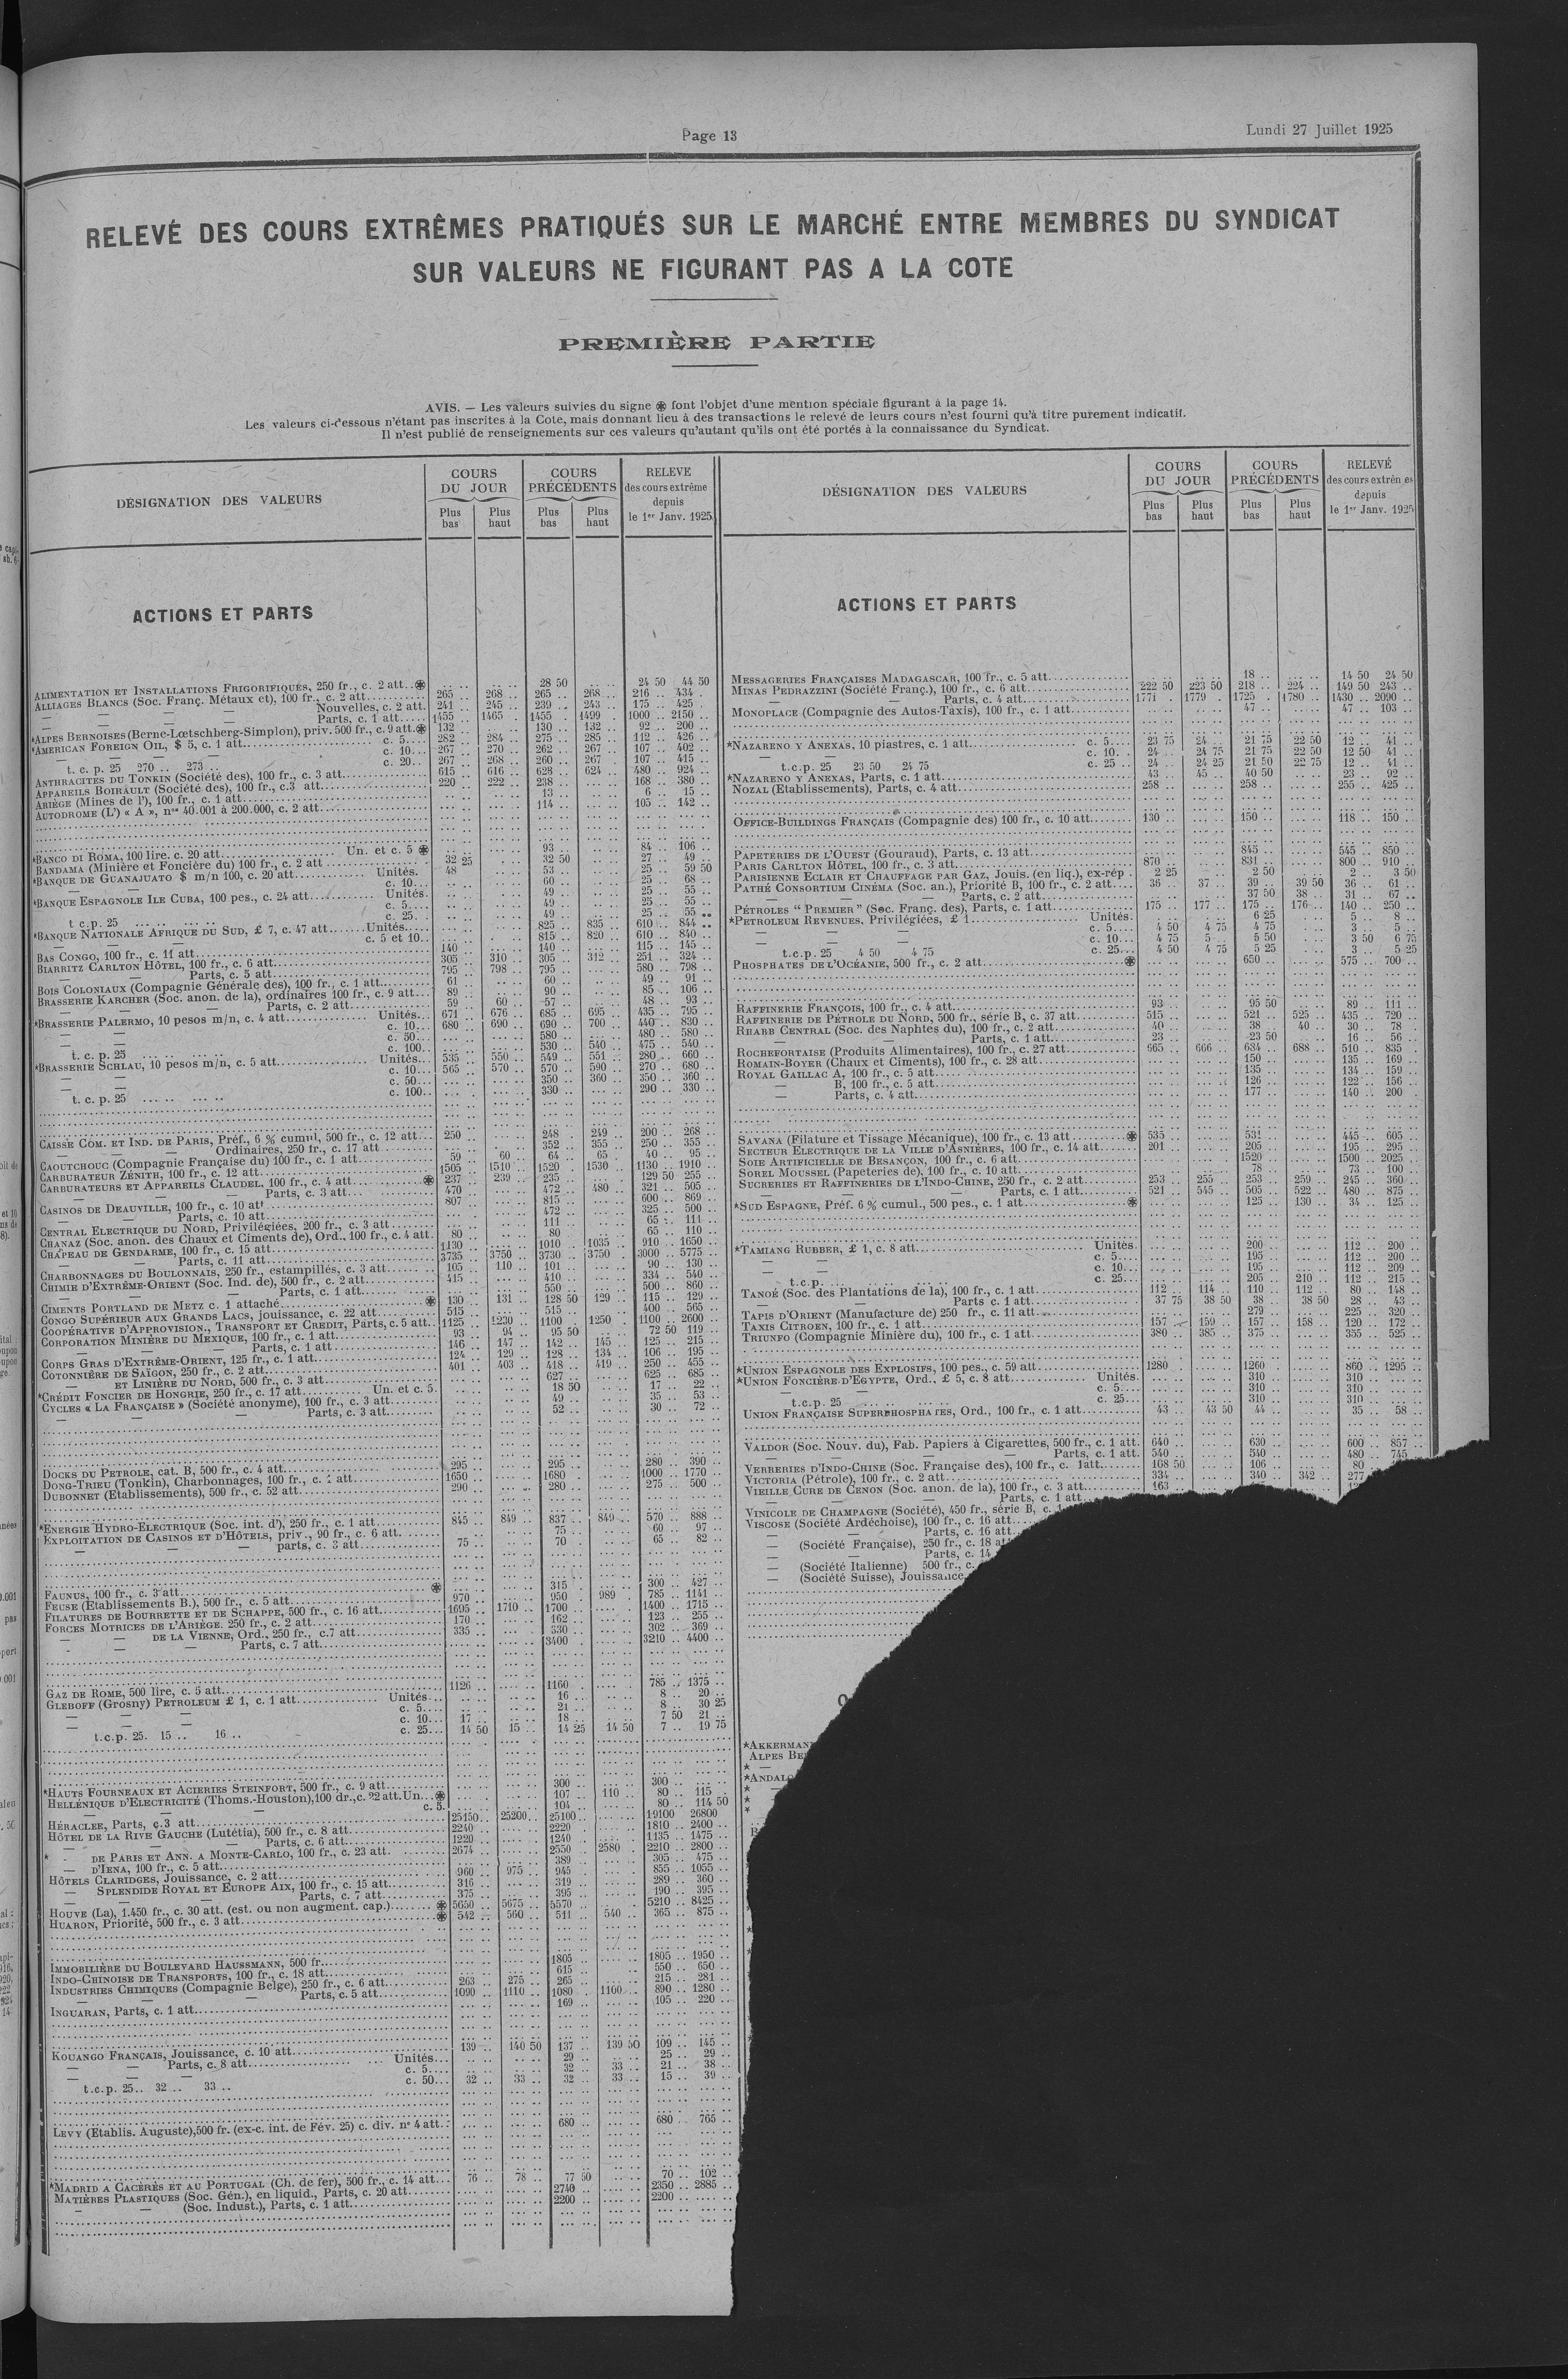 Page 13
Lundi 27 Juillet 1925
RELEVÉ DES COURS EXTRÊMES PRATIQUÉS SUR LE MARCHÉ ENTRE MEMBRES DU SYNDICAT
SUR VALEURS NE FIGURANT PAS A LA COTE
PREMIÈRE PARTIE
AVIS. — Les valeurs suivies du signe ֍ font l'objet d'une mention spéciale figurant à la page 14.
Les valeurs ci-dessous n'étant pas inscrites à la Cote, mais donnant lieu à des transactions le relevé de leurs cours n'est fourni qu'à titre purement indicatif.
Il n'est publié de renseignements sur ces valeurs qu'autant qu'ils ont été portés à la connaissance du Syndicat.
DÉSIGNATION DES VALEURS
COURS DU JOUR
COURS PRÉCÉDENTS
RELEVE des cours extrême depuis le 1er Janv. 1925
Plus bas
Plus haut
Plus bas
Plus haut
ACTIONS ET PARTS
ALIMENTATION ET INSTALLATIONS FRIGORIFIQUES, 250 fr., c. 2 att. 28 50 24 50 44 50
ALLIAGES BLANCS (Soc. Franç. Métaux et), 100 fr., c. 2 att. 265 268 265 268 216 434
— — — Nouvelles, c. 2 att. 241 245 239 243 175 425
— — — Parts, c. 1 att. 1455 1465 1455 1499 1000 2150
*ALPES BERNOISES (Berne-Lœtschberg-Simplon), priv. 500 fr., c. 9 att. 132 130 132 92 200
*AMERICAN FOREIGN OIL, $ 5, c. 1 att. c. 5 282 284 275 285 112 426
c. 10 267 270 262 267 107 402
t. c. p. 25 270 273 c. 20 267 268 260 267 107 415
ANTHRACITES DU TONKIN (Société des), 100 fr., c. 3 att. 615 616 628 624 480 924
APPAREILS BOIRAULT (Société des), 100 fr., c.3 att. 220 222 238 168 380
ARIÈGE (Mines de l'), 100 fr., c. 1 att. 13 6 15
AUTODROME (L') « A », nos 40.001 à 200.000, c. 2 att. 114 105 142
*BANCO DI ROMA, 100 lire. c. 20 att. Un. et c. 5 93 84 106
BANDAMA (Minière et Foncière du) 100 fr., c. 2 att 32 25 32 50 27 49
*BANQUE DE GUANAJUATO $ m/n 100, c. 20 att. Unités. 48 53 25 59 50
c. 10 60 25 68
*BANQUE ESPAGNOLE ILE CUBA, 100 pes., c. 24 att. Unités. 49 25 55
c. 5 49 25 55
t c.p. 25 c. 25 49 25 55
*BANQUE NATIONALE AFRIQUE DU SUD, £ 7, c. 47 att. Unités. 825 835 610 844
c. 5 et 10 815 820 610 840
BAS CONGO, 100 fr., c. 11 att. 140 140 115 145
BIARRITZ CARLTON HÔTEL, 100 fr., c. 6 att. 305 310 305 312 251 324
— — Parts, c. 5 att. 795 798 795 580 798
BOIS COLONIAUX (Compagnie Générale des), 100 fr., c. 1 att. 61 60 49 91
BRASSERIE KARCHER (Soc. anon. de la), ordinaires 100 fr., c. 9 att. 89 90 85 106
Parts, c. 2 att. 59 60 57 48 93
*BRASSERIE PALERMO, 10 pesos m/n, c. 4 att. Unités. 671 676 685 695 435 795
c. 10 680 690 690 700 440 830
c. 50 580 480 580
t. c. p. 25 c. 100 530 540 475 540
*BRASSERIE SCHLAU, 10 pesos m/n, c. 5 att. Unités. 535 550 549 551 280 660
c. 10 565 570 570 590 270 680
c. 50 350 360 350 360
t. c. p. 25 c. 100 330 290 330
CAISSE COM. ET IND. DE PARIS, Préf., 6 % cumul, 500 fr., c. 12 att. 250 248 249 200 268
Ordinaires, 250 fr., c. 17 att 352 355 250 355
CAOUTCHOUC (Compagnie Française du) 100 fr., c. 1 att. 59 60 64 65 40 95
CARBURATEUR ZÉNITH, 100 fr., c. 12 att. 1505 1510 1520 1530 1130 1910
CARBURATEURS ET APPAREILS CLAUDEL, 100 fr., c. 4 att. 237 239 235 129 50 255
— — Parts, c. 3 att. 470 472 480 321 505
CASINOS DE DEAUVILLE, 100 fr., c. 10 att 807 815 600 869
Parts, c. 10 att. 472 325 500
CENTRAL ELECTRIQUE DU NORD, Privilégiées, 200 fr., c. 3 att 111 65 111
CHANAZ (Soc. anon. des Chaux et Ciments de), Ord., 100 fr., c. 4 att. 80 80 65 110
CHAPEAU DE GENDARME, 100 fr., c. 15 att. 1130 1010 1035 910 1650
Parts, c. 11 att. 3735 3750 3730 3750 3000 5775
CHARBONNAGES DU BOULONNAIS, 250 fr., estampillés, c. 3 att. 105 110 101 90 130
CHIMIE D'EXTRÊME-ORIENT (Soc. Ind. de), 500 fr., c. 2 att. 415 410 334 540
— — Parts, c. 1 att. 550 500 860
CIMENTS PORTLAND DE METZ c. 1 attaché 130 131 128 50 129 115 129
CONGO SUPÉRIEUR AUX GRANDS LACS, jouissance, c. 22 att. 515 515 400 565
COOPÉRATIVE D'APPROVISION., TRANSPORT ET CREDIT, Parts, c. 5 att. 1125 1230 1100 1250 1100 2600
CORPORATION MINIÈRE DU MEXIQUE, 100 fr., c. 1 att. 93 94 95 50 72 50 119
— — Parts, c. 1 att. 146 147 142 145 125 215
CORPS GRAS D'EXTRÊME-ORIENT, 125 fr., c. 1 att. 124 129 128 134 106 195
COTONNIÈRE DE SAÏGON, 250 fr., c. 2 att. 401 403 418 419 250 455
— ET LINIÈRE DU NORD, 500 fr., c. 3 att. 627 625 685
*CRÉDIT FONCIER DE HONGRIE, 250 fr., c. 17 att. Un. et c. 5. 18 50 17 22
CYCLES « LA FRANÇAISE » (Société anonyme), 100 fr., c. 3 att. 49 35 53
— — Parts, c. 3 att. 52 30 72
DOCKS DU PETROLE, cat. B, 500 fr., c. 4 att. 295 295 280 390
DONG-TRIEU (Tonkin), Charbonnages, 100 fr., c. 1 att. 1650 1680 1000 1770
DUBONNET (Etablissements), 500 fr., c. 52 att. 290 280 275 500
*ENERGIE HYDRO-ELECTRIQUE (Soc. int. d'), 250 fr., c. 1 att. 845 849 837 849 570 888
EXPLOITATION DE CASINOS ET D'HÔTELS, priv., 90 fr., c. 6 att. 75 60 97
— — — parts, c. 3 att. 75 70 65 82
FAUNUS, 100 fr., c. 3 att. 315 300 427
FEUSE (Etablissements B.), 500 fr., c. 5 att. 970 950 989 785 1141
FILATURES DE BOURRETTE ET DE SCHAPPE, 500 fr., c. 16 att. 1695 1710 1700 1400 1715
FORCES MOTRICES DE L'ARIÈGE. 250 fr., c. 2 att. 170 162 123 255
— — DE LA VIENNE, Ord., 250 fr., c.7 att. 335 330 302 369
— — Parts, c. 7 att. 3400 3210 4400
GAZ DE ROME, 500 lire, c. 5 att. 1126 1160 785 1375
GLEBOFF (Grosny) PETROLEUM £ 1, c. 1 att. Unités. 16 8 20
c. 5 21 8 30 25
c. 10 17 18 7 50 21
t.c.p. 25. 15 16 c. 25 14 50 15 14 25 14 50 7 19 75
*HAUTS FOURNEAUX ET ACIERIES STEINFORT, 500 fr., c. 9 att. 300 300
HELLÉNIQUE D'ELECTRICITÉ (Thoms.-Houston), 100 dr., c. 22 att. Un. 107 110 80 115
c. 5. 104 80 114 50
HÉRACLEE, Parts, c.3 att. 25150 25200 25100 19100 26800
HÔTEL DE LA RIVE GAUCHE (Lutétia), 500 fr., c. 8 att. 2240 2220 1810 2400
— — Parts, c. 6 att. 1220 1240 1135 1475
* - DE PARIS ET ANN. A MONTE-CARLO, 100 fr., c. 23 att. 2674 2550 2580 2210 2800
— D'IENA, 100 fr., c. 5 att. 389 305 475
HÔTELS CLARIDGES, Jouissance, c. 2 att. 960 975 945 855 1055
— SPLENDIDE ROYAL ET EUROPE AIX, 100 fr., c. 15 att. 316 319 289 360
— — Parts, c. 7 att. 375 395 190 395
HOUVE (La), 1.450 fr., c. 30 att. (est. ou non augment. cap.) 5650 5675 5570 5210 8425
HUARON, Priorité, 500 fr., c. 3 att. 542 560 511 540 365 875
IMMOBILIÈRE DU BOULEVARD HAUSSMANN, 500 fr. 1805 1805 1950
INDO-CHINOISE DE TRANSPORTS, 100 fr., c. 18 att. 615 550 650
INDUSTRIES CHIMIQUES (Compagnie Belge), 250 fr., c. 6 att. 263 275 265 215 281
— — Parts, c. 5 att. 1090 1110 1080 1100 890 1280
INGUARAN, Parts, c. 1 att. 169 105 220
KOUANGO FRANÇAIS, Jouissance, c. 10 att. 139 140 50 137 139 50 109 145
— — Parts, c. 8 att. Unités. 29 25 29
c. 5 32 33 21 38
t.c.p. 25 32 33 c. 50 32 33 32 33 15 39
LEVY (Etablis. Auguste), 500 fr. (ex-c. int. de Fév. 25) c. div. n° 4 att. 680 680 765
*MADRID A CACÉRÈS ET AU PORTUGAL (Ch. de fer), 500 fr., c. 14 att. 76 78 77 50 70 102
MATIÈRES PLASTIQUES (Soc. Gén.), en liquid., Parts, c. 20 att. 2740 2350 2885
— — (Soc. Indust.), Parts, c. 1 att. 2200 2200
DÉSIGNATION DES VALEURS
COURS DU JOUR
COURS PRÉCÉDENTS
RELEVÉ des cours extrêmes depuis le 1er Janv. 1925
Plus bas
Plus haut
Plus bas
Plus haut
ACTIONS ET PARTS
MESSAGERIES FRANÇAISES MADAGASCAR, 100 fr., c. 5 att. 18 14 50 24 50
MINAS PEDRAZZINI (Société Franç.), 100 fr., c. 6 att. 222 50 223 50 218 224 149 50 243
Parts, c. 4 att. 1771 1779 1725 1780 1430 2090
MONOPLACE (Compagnie des Autos-Taxis), 100 fr., c. 1 att. 47 47 103
*NAZARENO Y ANEXAS, 10 piastres, c. 1 att. c. 5 23 75 24 21 75 22 50 12 41
c. 10 24 24 75 21 75 22 50 12 50 41
t.c.p. 25 23 50 24 75 c. 25 24 24 25 21 50 22 75 12 41
*NAZARENO Y ANEXAS, Parts, c. 1 att. 43 45 40 50 23 92
NOZAL (Etablissements), Parts, c. 4 att. 258 258 255 425
OFFICE-BUILDINGS FRANÇAIS (Compagnie des) 100 fr., c. 10 att. 130 150 118 150
PAPETERIES DE L'OUEST (Gouraud), Parts, c. 13 att. 845 545 850
PARIS CARLTON HÔTEL, 100 fr., c. 3 att. 870 831 800 910
PARISIENNE ECLAIR ET CHAUFFAGE PAR GAZ, Jouis. (en liq.), ex-rép. 2 25 2 50 2 3 50
PATHÉ CONSORTIUM CINÉMA (Soc. an.), Priorité B, 100 fr., c. 2 att. 36 37 39 39 50 36 61
— Parts, c. 2 att. 37 50 38 31 67
PÉTROLES “ PREMIER ” (Soc. Franç. des), Parts, c. 1 att. 175 177 175 176 140 250
*PETROLEUM REVENUES, Privilégiées, £ 1 Unités. 6 25 5 8
c. 5 4 50 4 75 4 75 3 5
c. 10 4 75 5 5 50 3 50 6 75
t.c.p. 25 4 50 4 75 c. 25 4 50 4 75 5 25 3 5 25
PHOSPHATES DE L'OCÉANIE, 500 fr., c. 2 att. 650 575 700
RAFFINERIE FRANÇOIS, 100 fr., c. 4 att. 93 95 50 89 111
RAFFINERIE DE PÉTROLE DU NORD, 500 fr., série B, c. 37 att. 515 521 525 435 720
RHARB CENTRAL (Soc. des Naphtes du), 100 fr., c. 2 att. 40 38 40 30 78
— — Parts, c. 1 att. 23 23 50 16 56
ROCHEFORTAISE (Produits Alimentaires), 100 fr., c. 27 att. 665 666 684 688 510 835
ROMAIN-BOYER (Chaux et Ciments), 100 fr., c. 28 att. 150 135 169
ROYAL GAILLAC A, 100 fr., c. 5 att. 135 134 159
— B, 100 fr., c. 5 att. 126 122 156
— Parts, c. 4 att. 177 140 200
SAVANA (Filature et Tissage Mécanique), 100 fr., c. 13 att. 535 531 445 605
SECTEUR ELECTRIQUE DE LA VILLE D'ASNIÈRES, 100 fr., c. 14 att. 201 205 195 295
SOIE ARTIFICIELLE DE BESANÇON, 100 fr., c. 6 att. 1520 1500 2025
SOREL MOUSSEL (Papeteries de), 100 fr., c. 10 att. 78 73 100
SUCRERIES ET RAFFINERIES DE L'INDO-CHINE, 250 fr., c. 2 att. 253 255 253 259 245 360
— Parts, c. 1 att. 521 545 505 522 480 875
*SUD ESPAGNE, Préf. 6 % cumul., 500 pes., c. 1 att. 125 130 34 125
*TAMIANG RUBBER, £ 1, c. 8 att. Unités. 200 112 200
c. 5 195 112 200
c. 10 195 112 209
t.c.p. c. 25 205 210 112 215
TANOÉ (Soc. des Plantations de la), 100 fr., c. 1 att. 112 114 110 112 80 148
— Parts c. 1 att. 37 75 38 50 38 38 50 28 43
TAPIS D'ORIENT (Manufacture de) 250 fr., c. 11 att. 279 225 320
TAXIS CITROEN, 100 fr., c. 1 att. 157 159 157 158 120 172
TRIUNFO (Compagnie Minière du), 100 fr., c. 1 att. 380 385 375 355 525
*UNION ESPAGNOLE DES EXPLOSIFS, 100 pes., c. 59 att. 1280 1260 860 1295
*UNION FONCIÈRE D'EGYPTE, Ord., £ 5, c. 8 att. Unités. 310 310
c. 5 310 310
t.c.p. 25 c. 25 310 310
UNION FRANÇAISE SUPERPHOSPHATES, Ord., 100 fr., c. 1 att. 43 43 50 44 35 58
VALDOR (Soc. Nouv. du), Fab. Papiers à Cigarettes, 500 fr., c. 1 att. 640 630 600 857
— — Parts, c. 1 att. 540 540 480 745
VERRERIES D'INDO-CHINE (Soc. Française des), 100 fr., c. 1att. 168 50 106 80
VICTORIA (Pétrole), 100 fr., c. 2 att. 334 340 342 277
VIEILLE CURE DE CENON (Soc. anon. de la), 100 fr., c. 3 att. 163
— Parts, c. 1 att.
VINICOLE DE CHAMPAGNE (Société), 450 fr., série B, c.
VISCOSE (Société Ardéchoise), 100 fr., c. 16 att.
— — Parts, c. 16 att.
— (Société Française), 250 fr., c. 18
Parts, c. 14
— (Société Italienne) 500 fr., c.
— (Société Suisse), Jouissance
*AKKERMAN
ALPES BE
*ANDAL